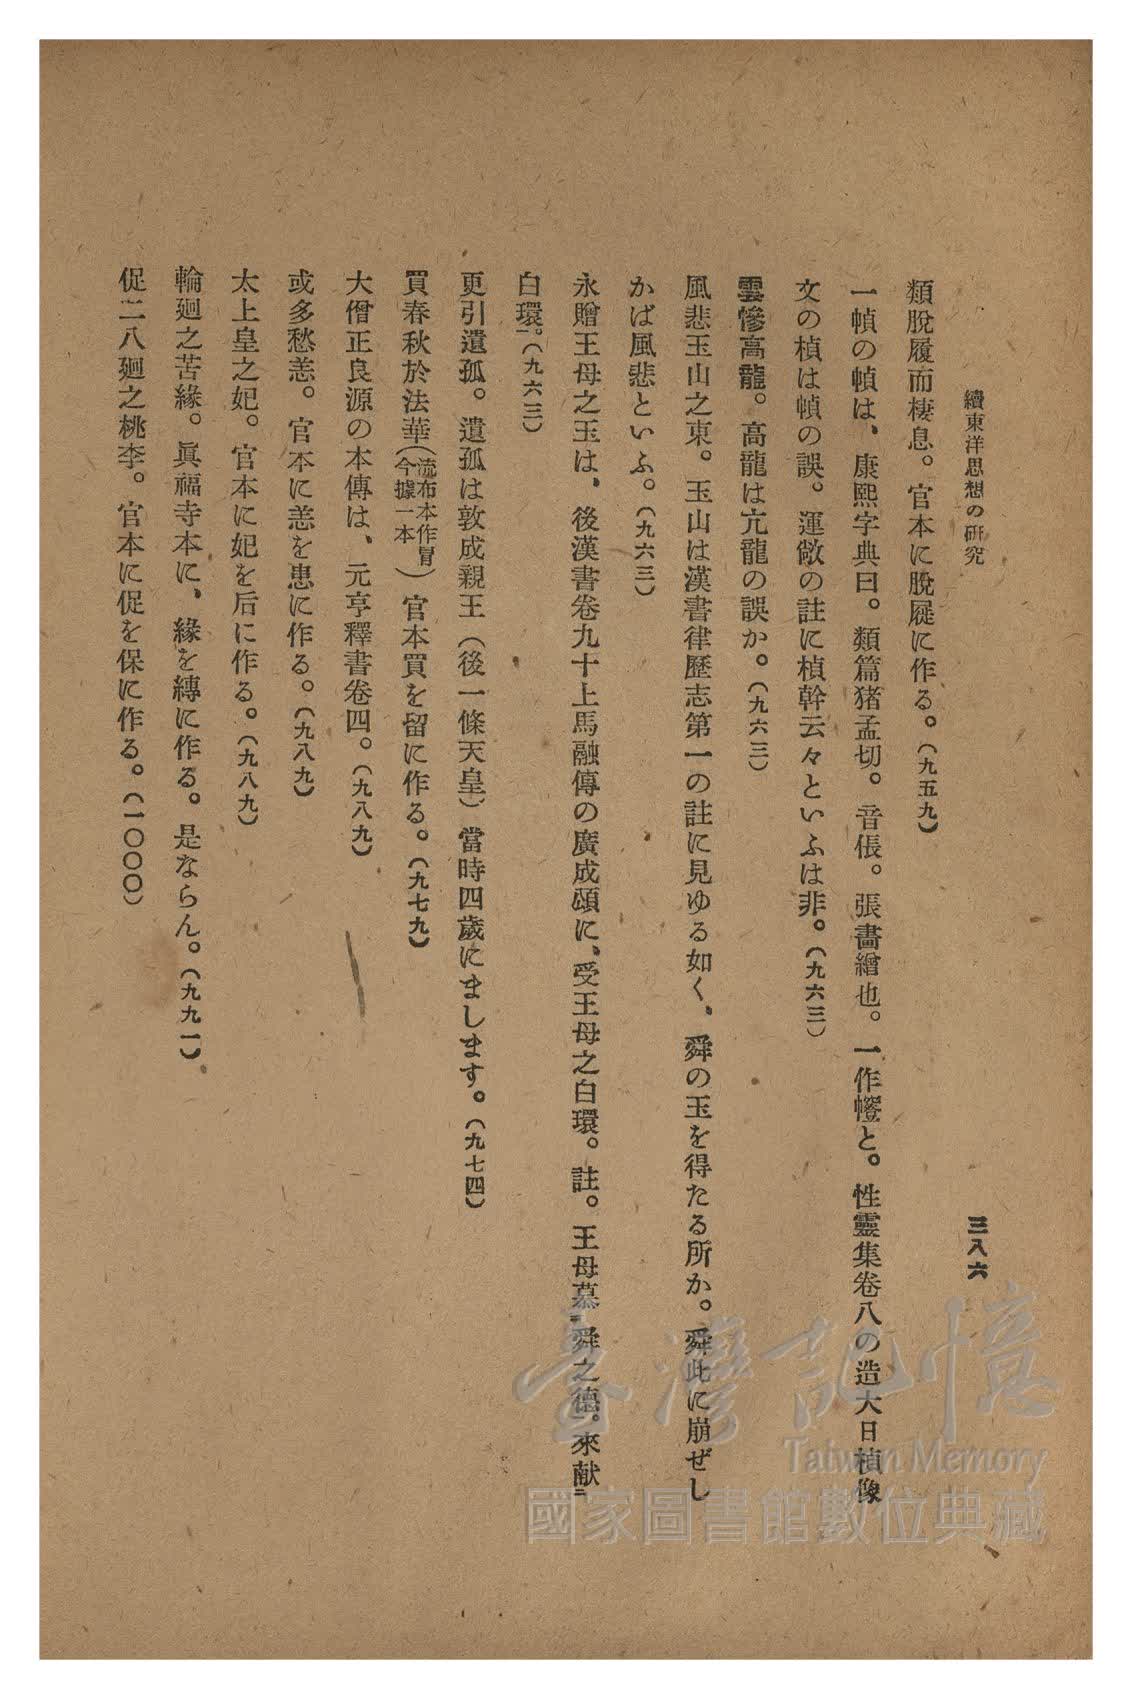 續東洋思想の研究
三八六
類脫履而棲息。官本に脫屣に作る。(九五九)
一幀の幀は、康熙字典曰。類篇猪孟切。音倀。張畵繪也。一作㡧と。性靈集卷八の造大日楨像
文の楨は幀の誤。運敞の註に楨幹云々といふは非。(九六三)
雲慘高龍。高龍は亢龍の誤か。(九六三)
風悲玉山之東。玉山は漢書律歷志第一の註に見ゆる如く、舜の玉を得たる所か。舜此に崩ぜし
かば風悲といふ。(九六三)
永贈王母之玉は、後漢書卷九十上馬融傳の廣成頌に、受王母之白環。註。王母慕㆓舜之德㆒。來献㆓
白環㆒。(九六三)
更引遺孤。遺孤は敦成親王(後一條天皇)當時四歲にまします。(九七四)
買春秋於法華(流布本作冒今據一本)官本買を留に作る。(九七九)
大僧正良源の本傳は、元亨釋書卷四。(九八九)
或多愁恙。官本に恙を患に作る。(九八九)
太上皇之妃。官本に妃を后に作る。(九八九)
輪廻之苦緣。眞福寺本に、緣を縛に作る。是ならん。(九九一)
促二八廻之桃李。官本に促を保に作る。(一〇〇〇)
臺灣記憶
Taiwan Memory
國家圖書館數位典藏